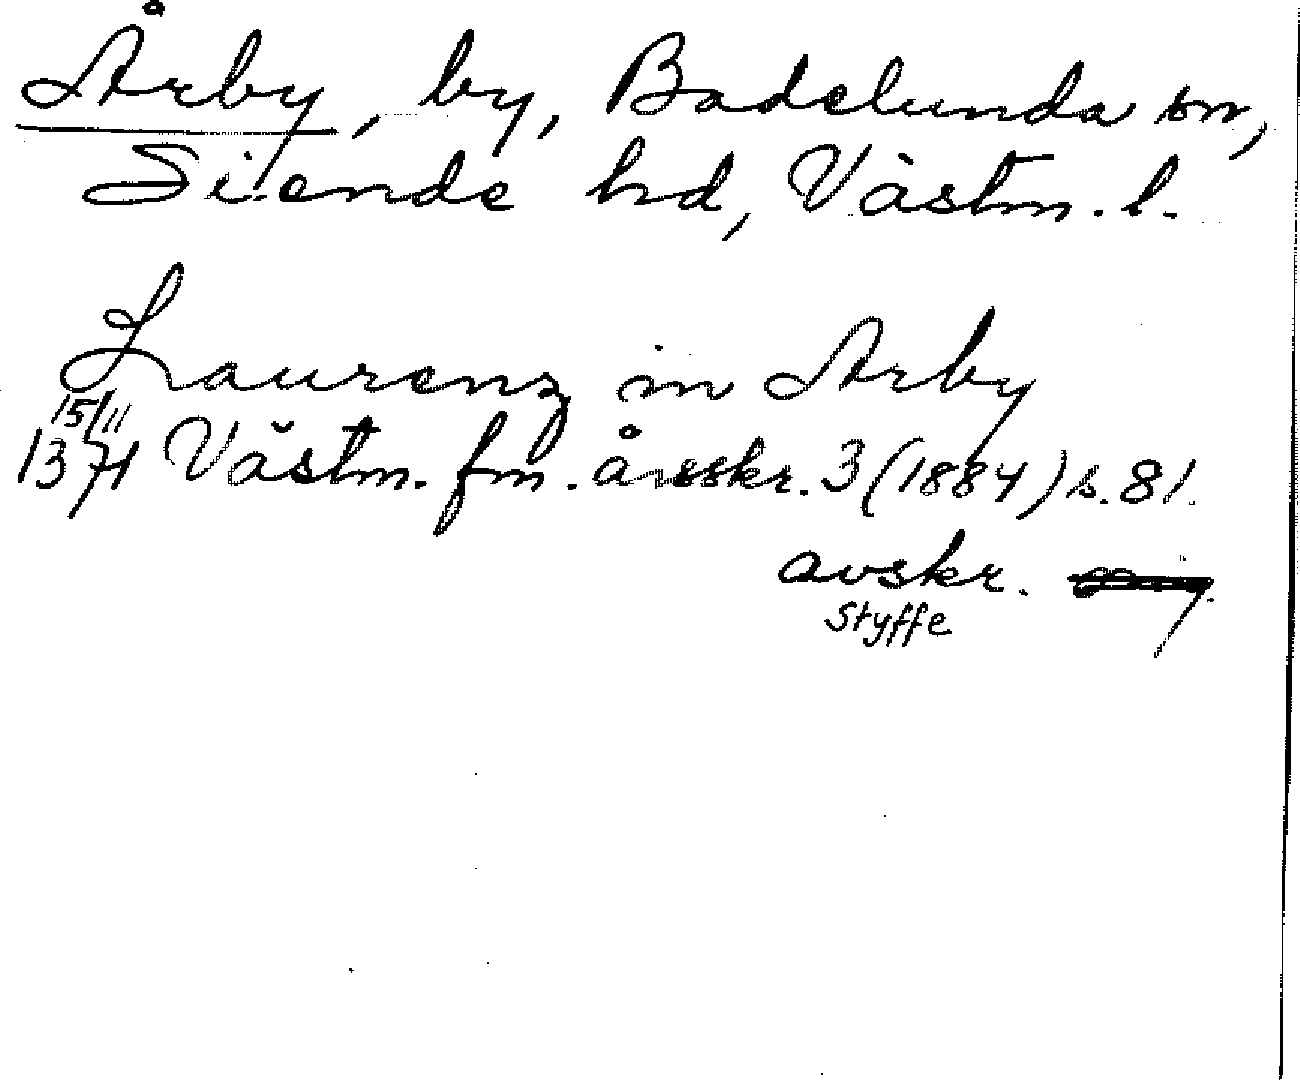 Årby, by, Badelunda sn,
Siende hd, Västm. l.
Laurenz in Arby
15/11
1371 Västm. fm. årsskr. 3 (1884) s. 81.
avskr.
Styffe